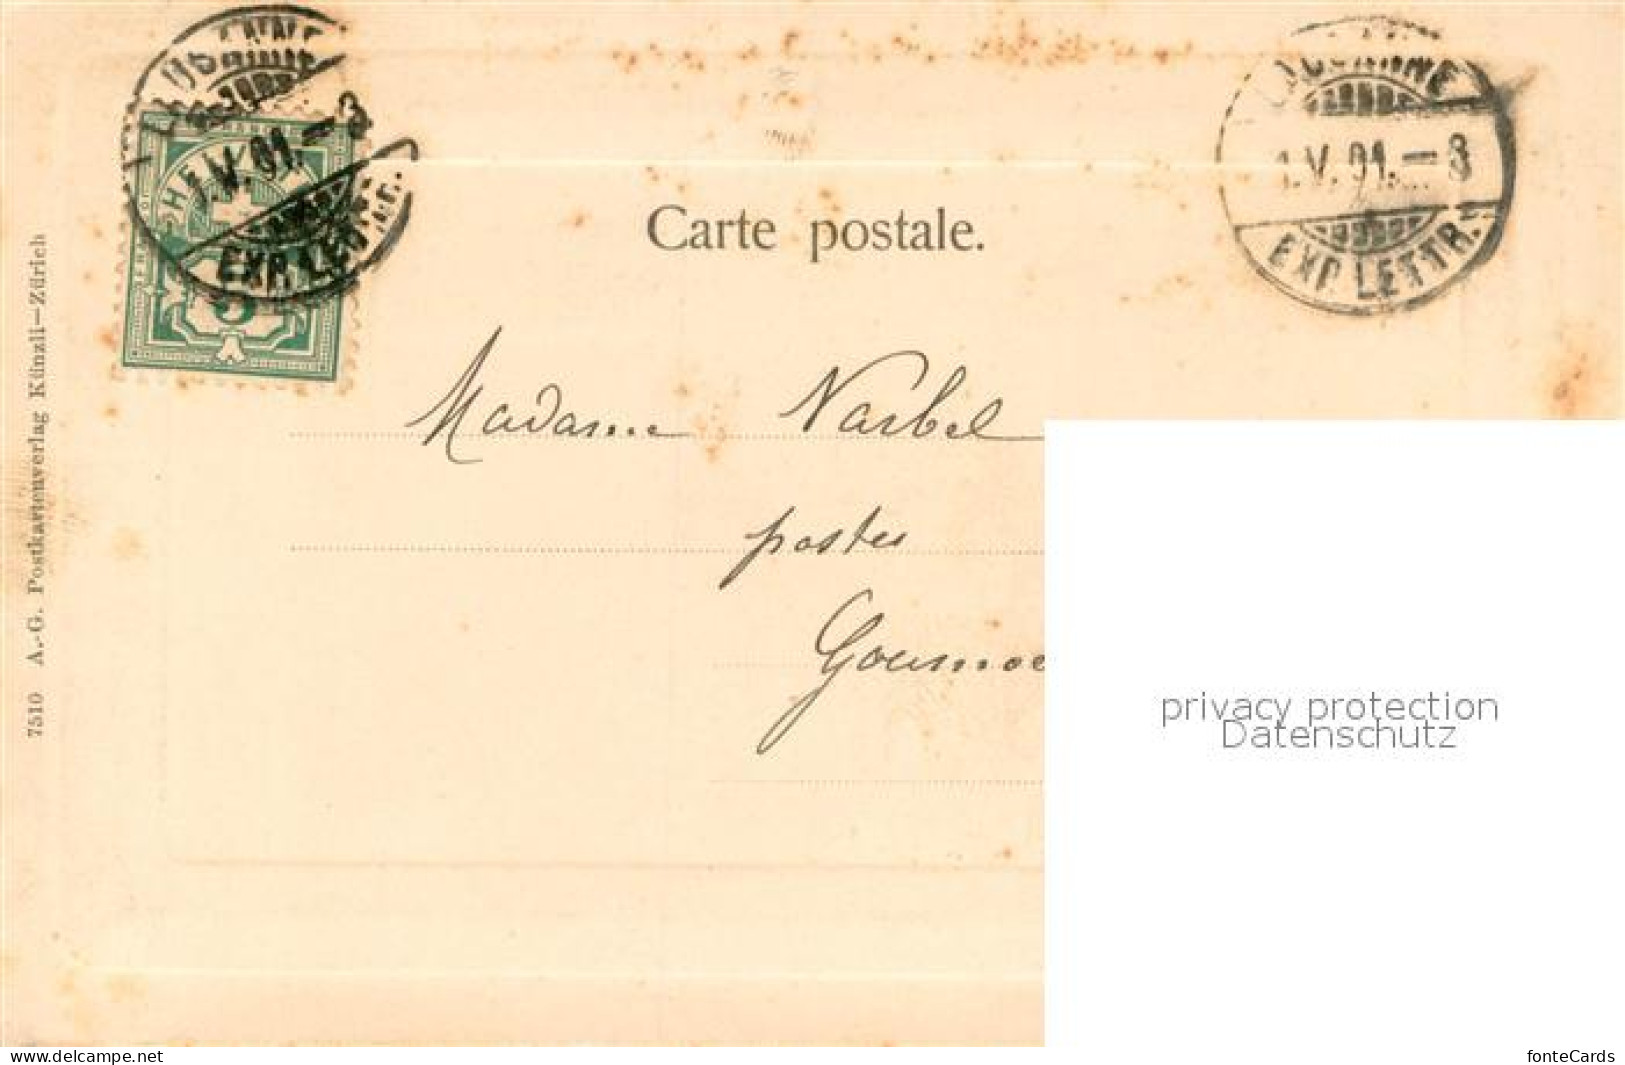 LAUSANNE
1.V.01.–8
EXP. LETTR.
5
LAUSANNE
1.V.01.–8
EXP. LETTR.
Carte postale.
Madame Narbel
postes
Goumoe
7510 A.-G. Postkartenverlag Künzli–Zürich
privacy protection
Datenschutz
www.delcampe.net
fonteCards